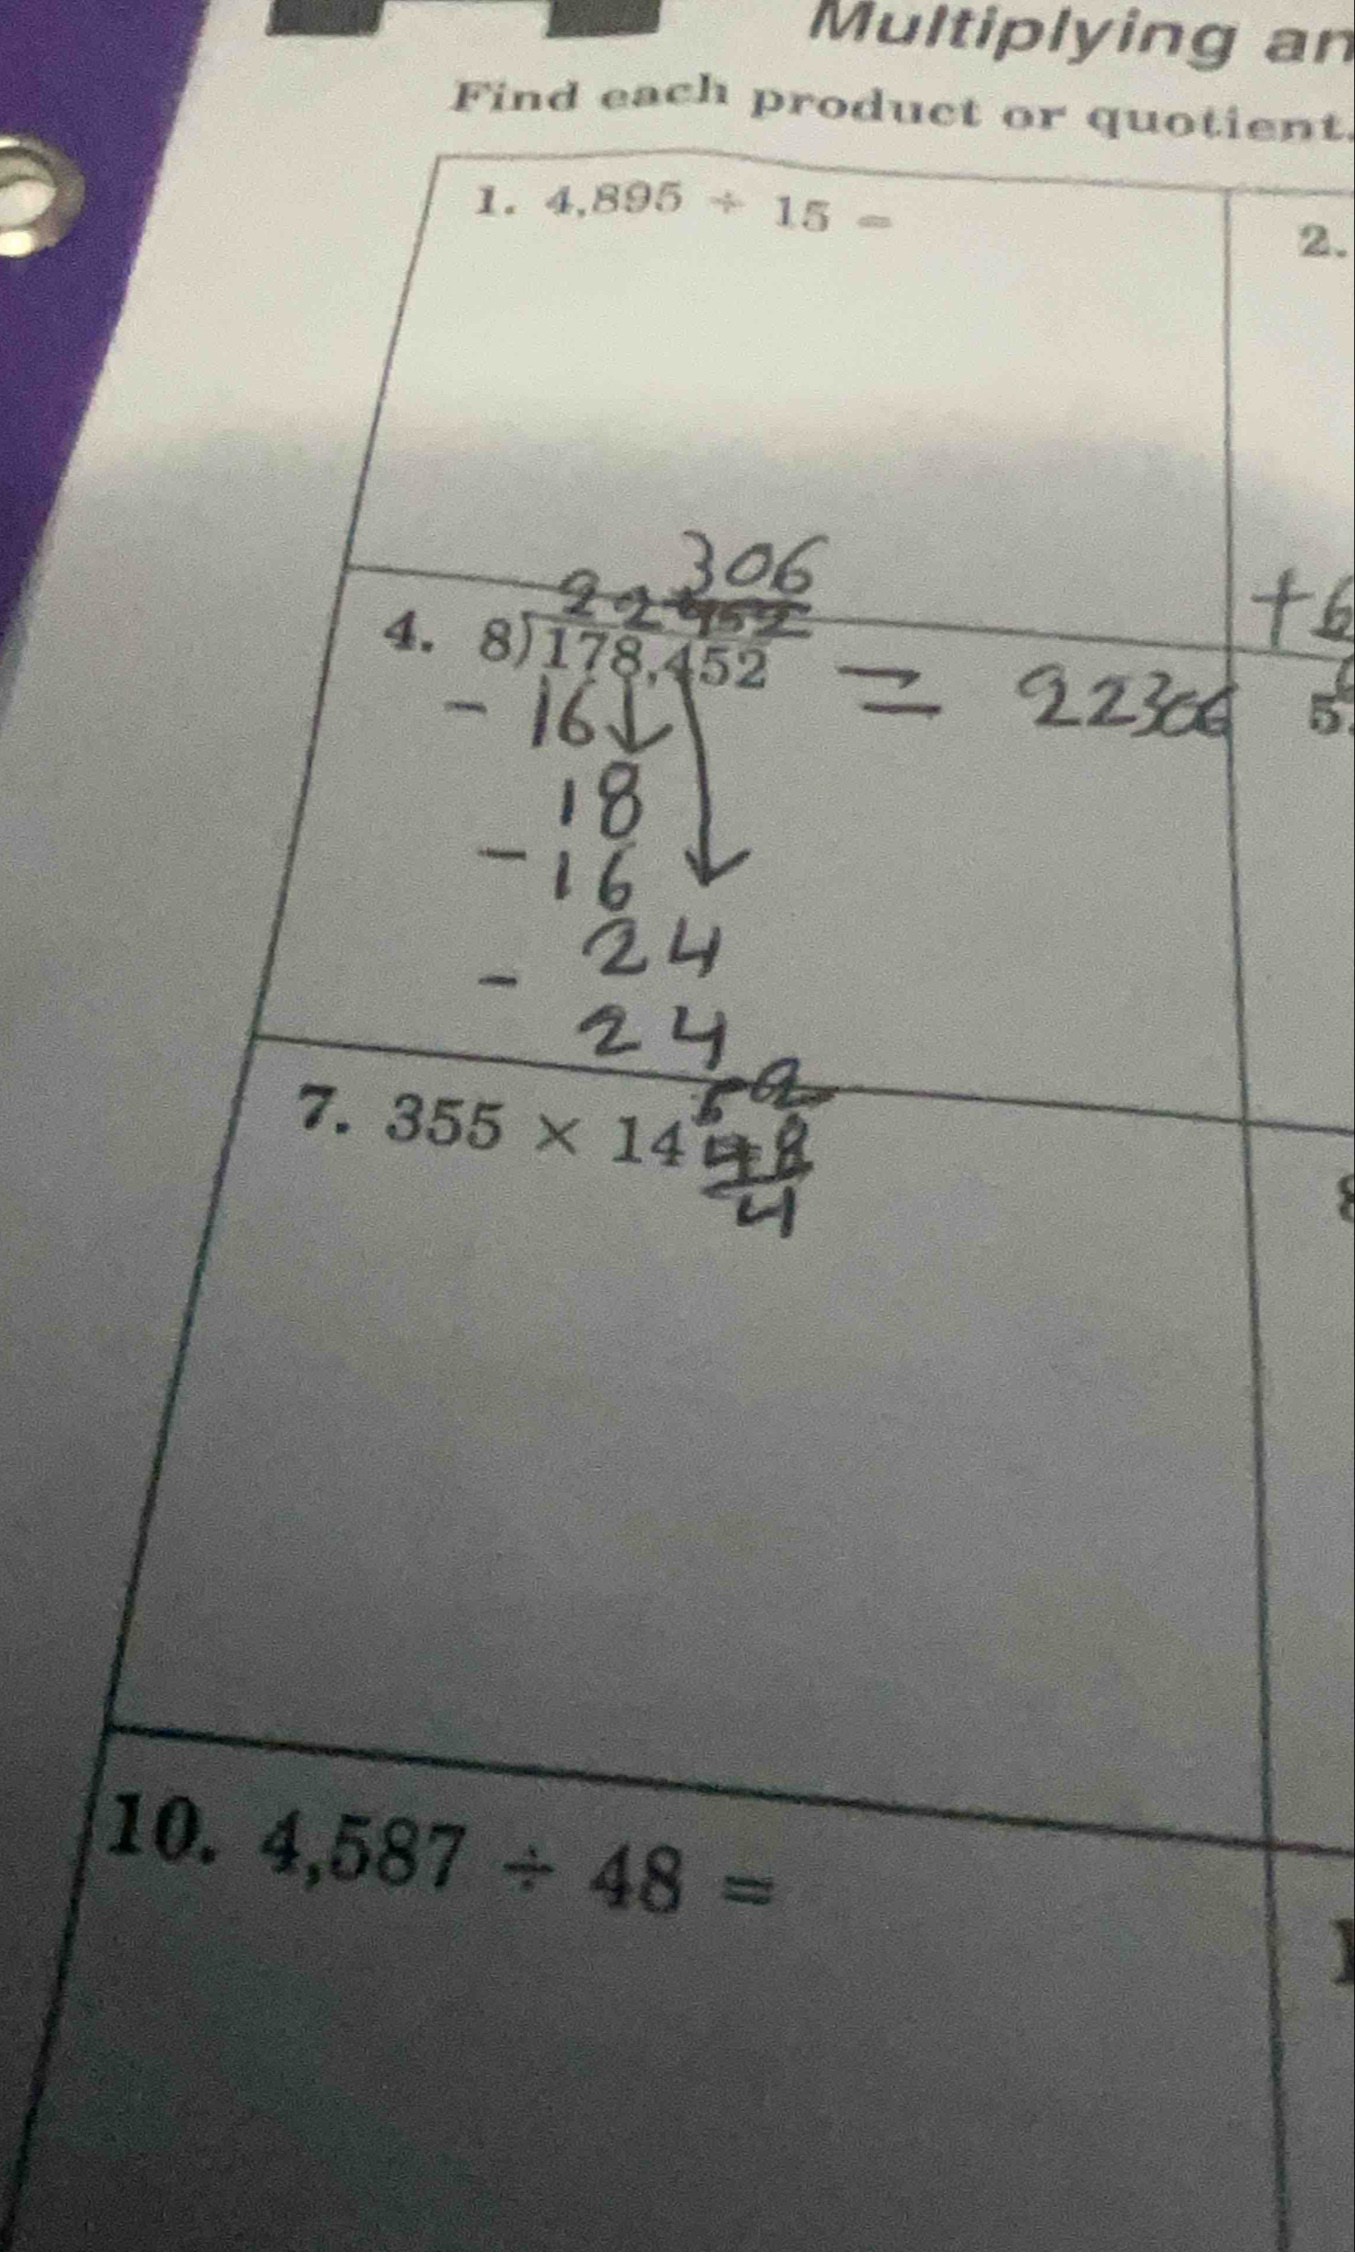 Multiplying an
Find each product or quotient.
1. 4,895 ÷ 15 =
2.
306
22
+6
4. 8)178,452 = 22306
5.
- 16
18
- 16
24
- 24
52
7. 355 × 14
48
4
10. 4,587 ÷ 48 =